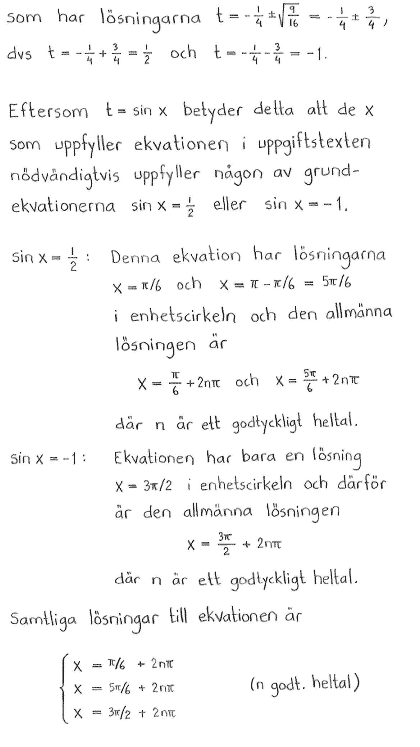 som har lösningarna t = -1/4 ± √(9/16) = -1/4 ± 3/4,
dvs t = -1/4 + 3/4 = 1/2 och t = -1/4 - 3/4 = -1.
Eftersom t = sin x betyder detta att de x
som uppfyller ekvationen i uppgiftstexten
nödvändigtvis uppfyller någon av grund-
ekvationerna sin x = 1/2 eller sin x = -1.
sin x = 1/2 : Denna ekvation har lösningarna
x = π/6 och x = π - π/6 = 5π/6
i enhetscirkeln och den allmänna
lösningen är
x = π/6 + 2nπ och x = 5π/6 + 2nπ
där n är ett godtyckligt heltal.
sin x = -1 : Ekvationen har bara en lösning
x = 3π/2 i enhetscirkeln och därför
är den allmänna lösningen
x = 3π/2 + 2nπ
där n är ett godtyckligt heltal.
Samtliga lösningar till ekvationen är
x = π/6 + 2nπ
x = 5π/6 + 2nπ (n godt. heltal)
x = 3π/2 + 2nπ